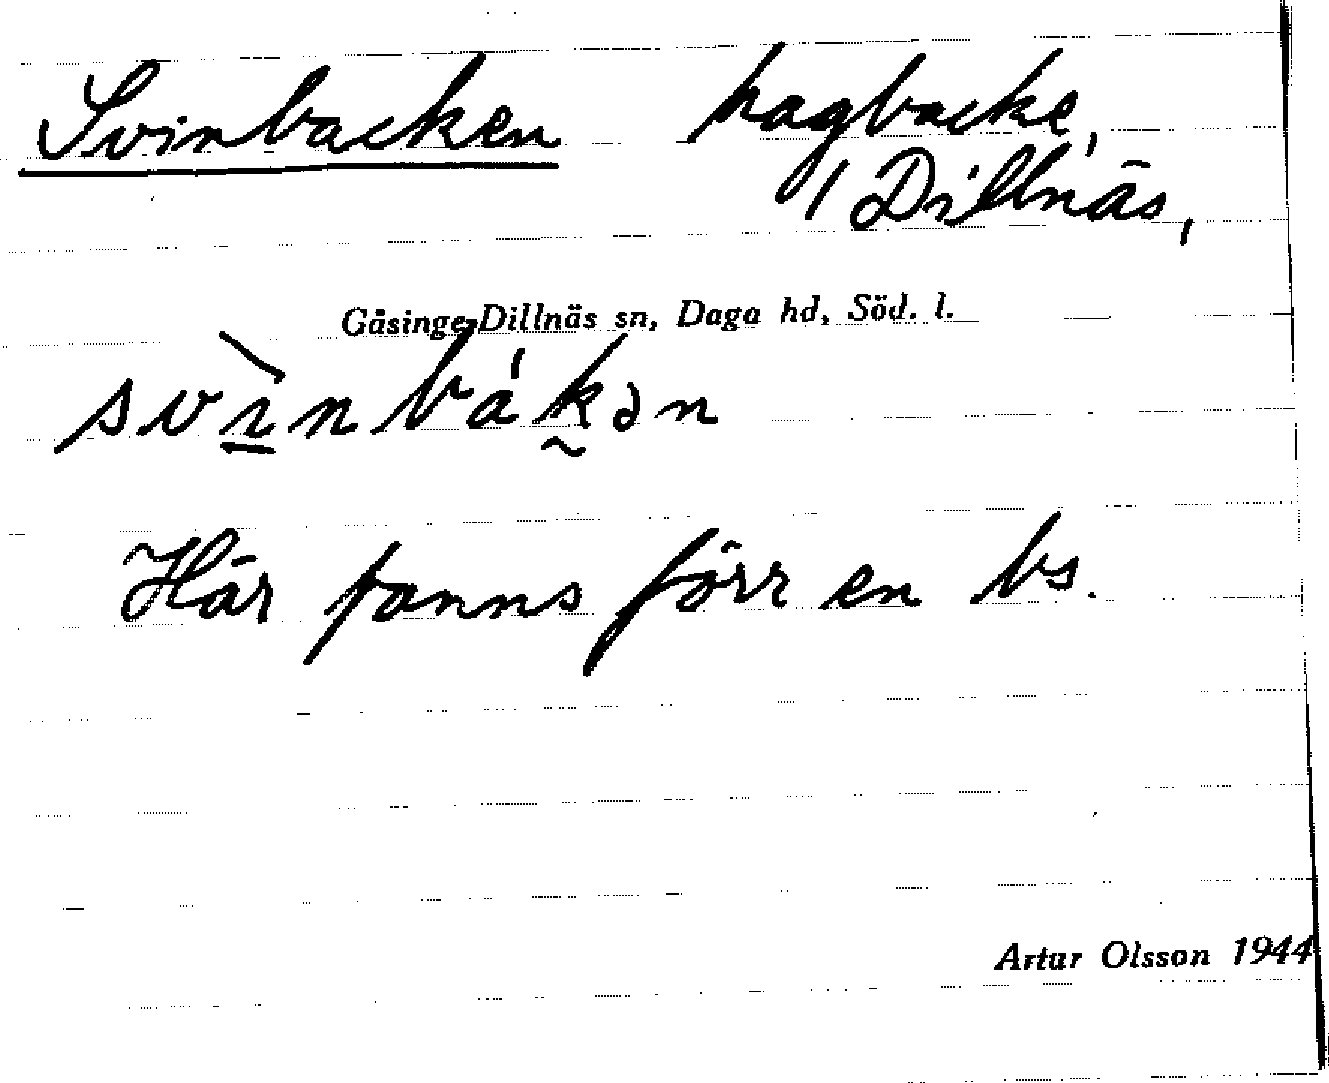 Svinbacken hagbacke,
/ Dillnäs,
Gåsinge-Dillnäs sn, Daga hd, Söd. l.
svı̀nbákən
Här fanns förr en bs.
Artur Olsson 1944